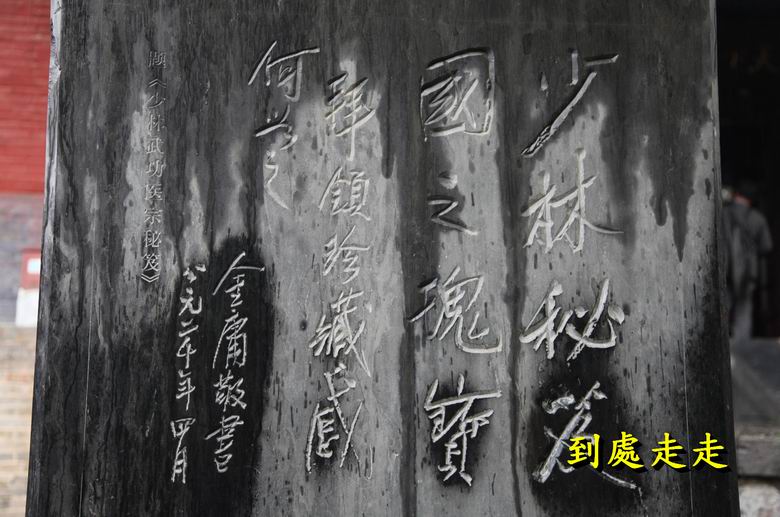 少林秘笈
國之瑰寶
拜領珍藏感
何如之
金庸敬書
公元二千年四月
題《少林武功医宗秘笈》
到處走走